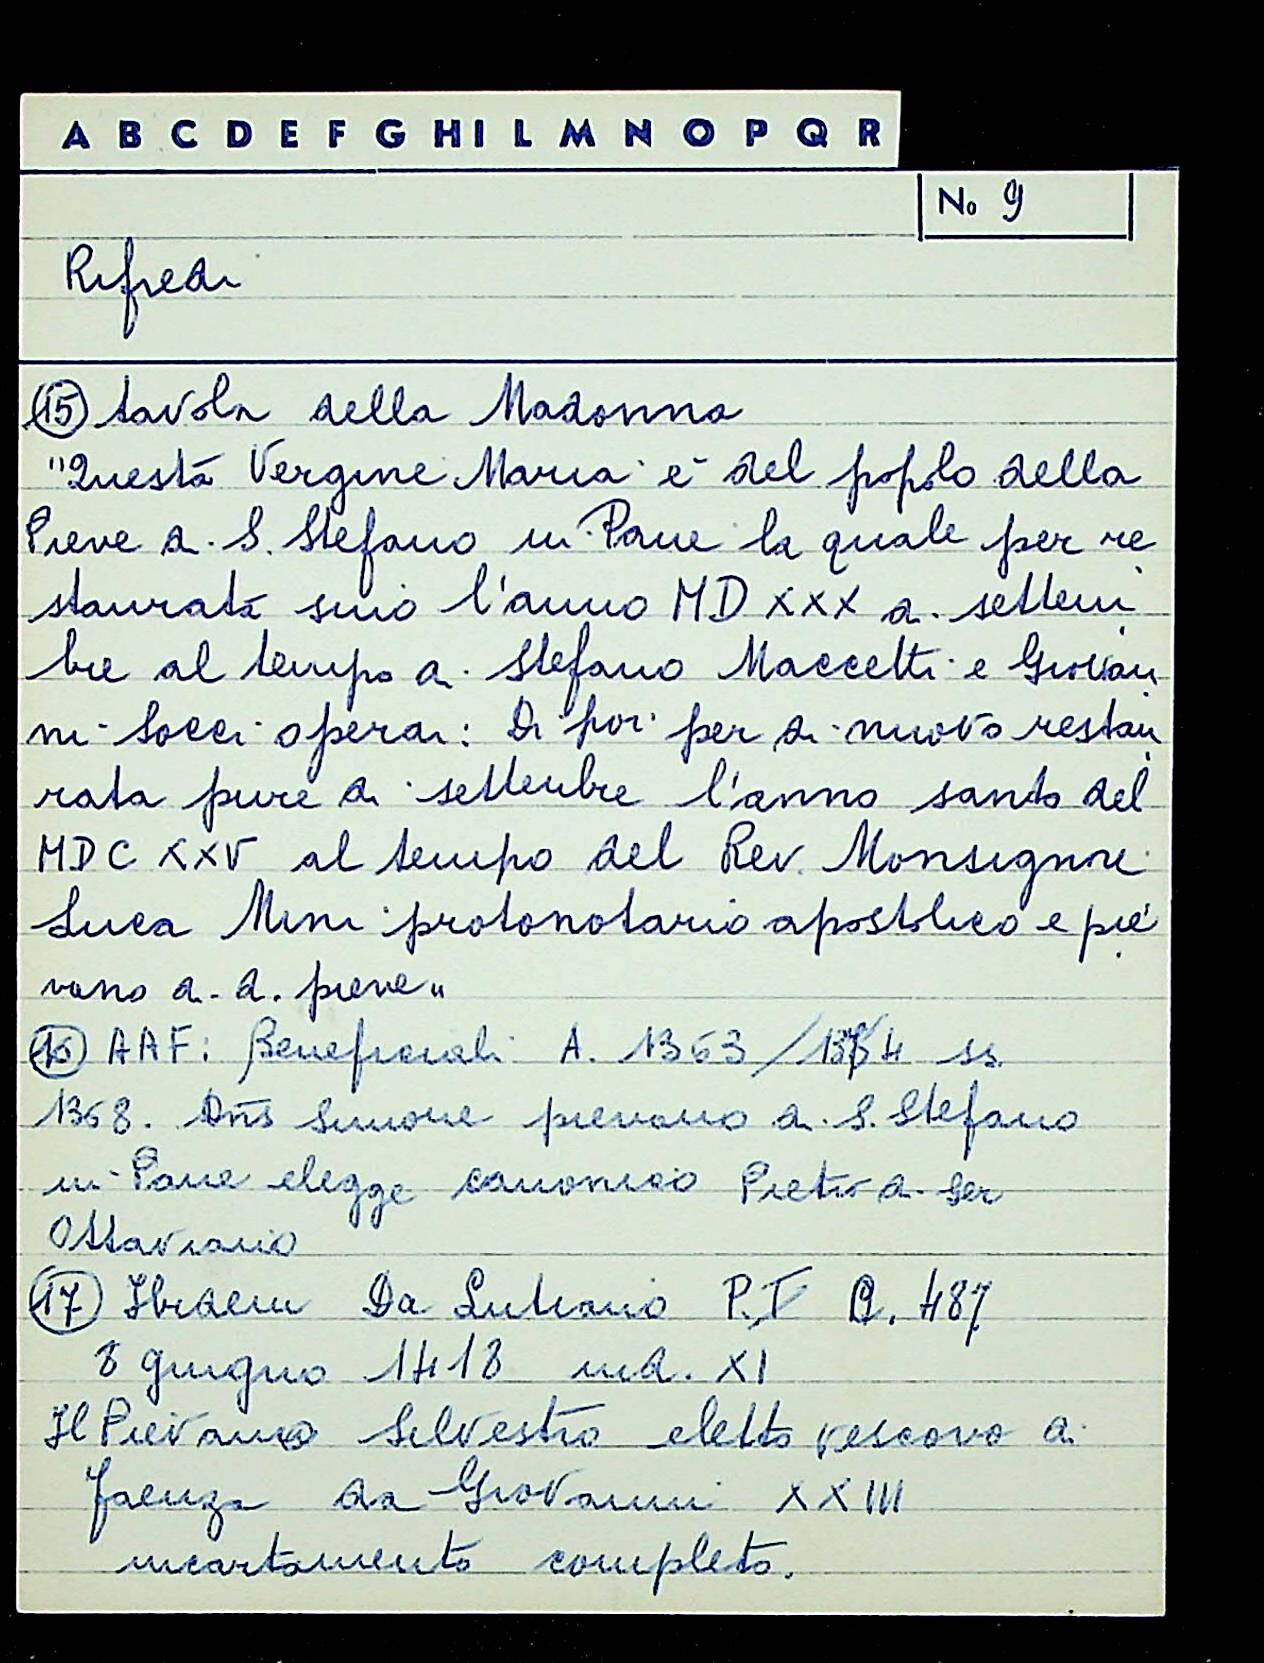 A B C D E F G H I L M N O P Q R
No 9
Rifredi
(15) tavola della Madonna
"Questa Vergine Maria è del popolo della
Pieve di S. Stefano in Pane la quale per re
staurata sino l'anno MDXXX di settem
bre al tempo di Stefano Maccetti e Giovan
ni Socci operai: Di poi per di nuovo restau
rata pure di settembre l'anno santo del
MDCXXV al tempo del Rev. Monsignore
Luca Mini protonotario apostolico e pie
vano di d. pieve"
(16) AAF: Beneficiali A. 1363/ ss
1368. Dñs Simone pievano di S. Stefano
in Pane elegge canonico Pietro di Ser
Ottaviano
(17) Ibidem Da Lutiano P.I 487
8 giugno 1418 ind. XI
Il Pievano Silvestro eletto vescovo di
Faenza da Giovanni XXIII
incartamento completo.